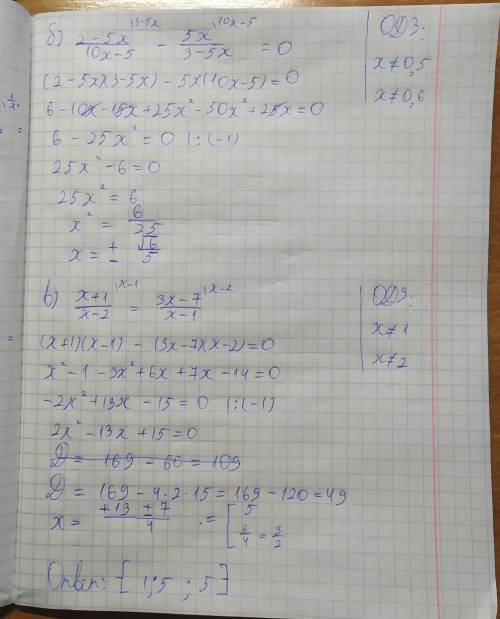 б) (2-5x)/(10x-5) |3-5x - 5x/(3-5x) |10x-5 = 0
ОДЗ:
x≠0,5
x≠0,6
(2-5x)(3-5x) - 5x(10x-5)=0
6-10x-15x+25x²-50x²+25x=0
6-25x²=0 |:(-1)
25x²-6=0
25x²=6
x² = 6/25
x = ± √6/5
в) (x+1)/(x-2) |x-1 = (3x-7)/(x-1) |x-2
ОДЗ:
x≠1
x≠2
(x+1)(x-1) - (3x-7)(x-2)=0
x²-1-3x²+6x+7x-14=0
-2x²+13x-15=0 |:(-1)
2x²-13x+15=0
D = 169-60=109
D = 169-4·2·15=169-120=49
x = (+13±7)/4 = [5
6/4 = 3/2
Ответ: {1;5 ; 5}